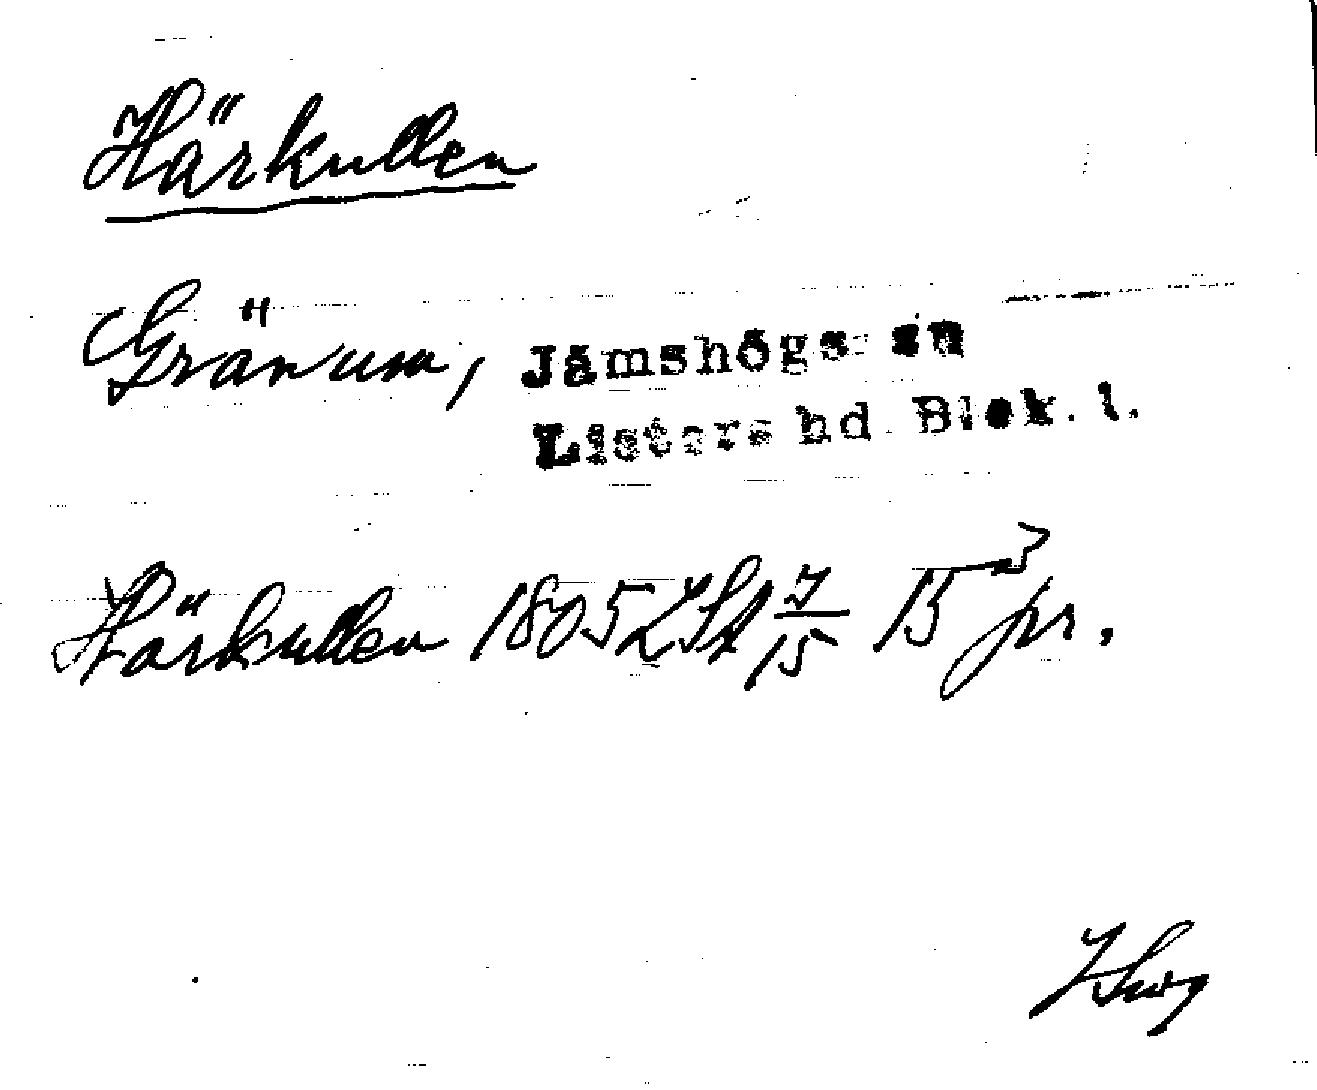 Härkullen
Gränum, Jämshögs sn
Listers hd. Blek. l.
Härkullen 1805 LSA 7/15 B 3 pr.